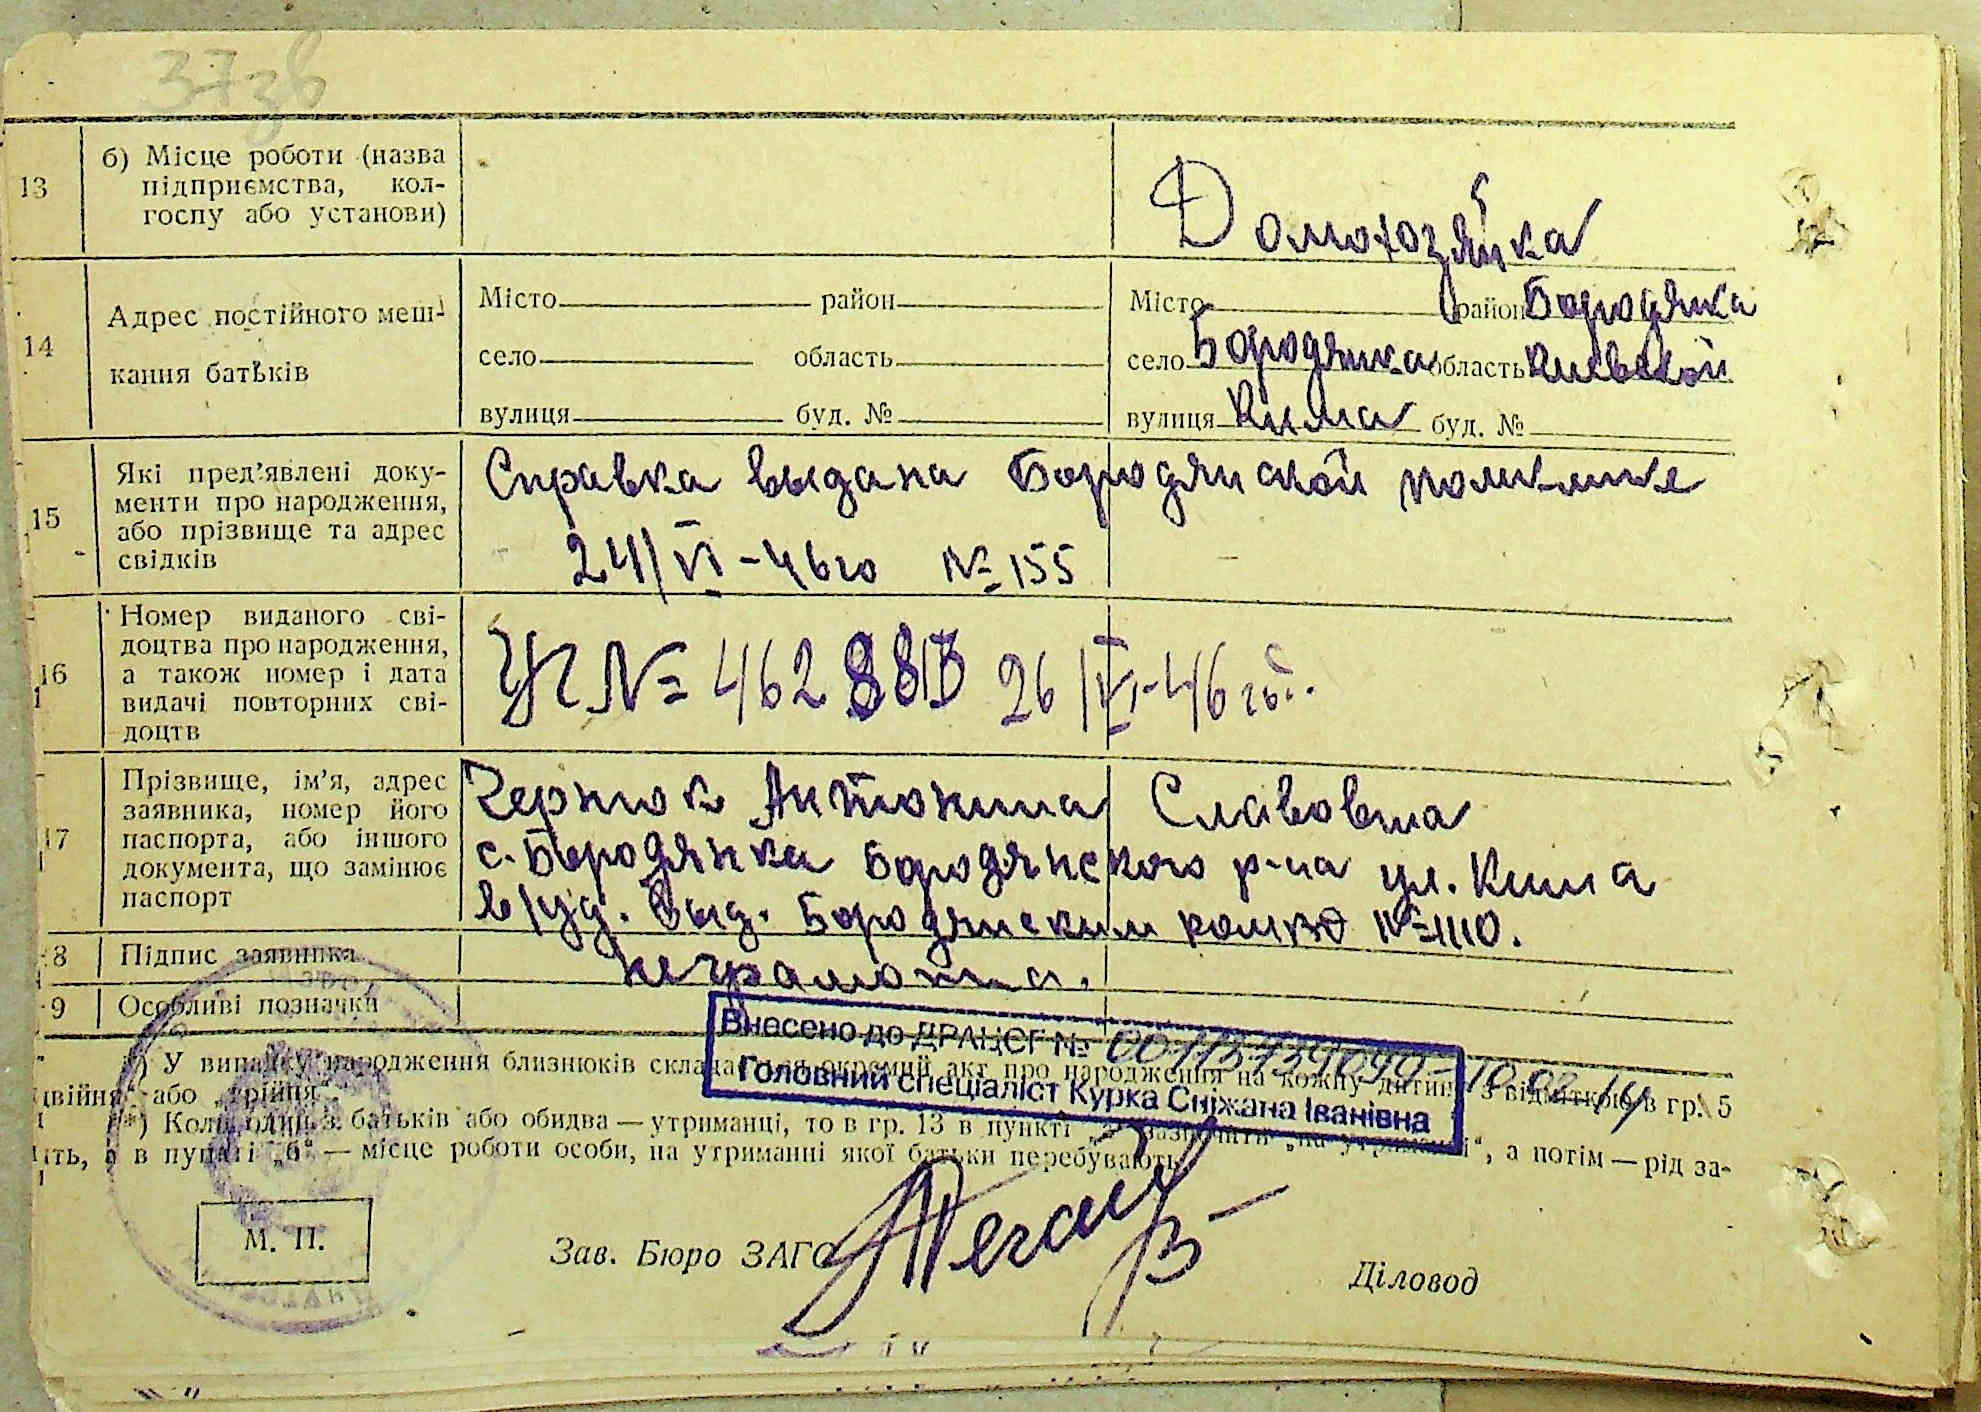 37зв
13
б) Місце роботи (назва
підприємства, кол-
госпу або установи)
Домохозяйка
14
Адрес постійного меш-
кання батьків
Місто район
село область
вулиця буд. №
Місто район Бородянка
село Бородянка область Киевской
вулиця Кима буд. №
15
Які пред'явлені доку-
менти про народження,
або прізвище та адрес
свідків
Справка выдана Бородянской
24/VI-46го № 155
16
Номер виданого сві-
доцтва про народження,
а також номер і дата
видачі повторних сві-
доцтв
№ 462 26/VI-46
17
Прізвище, ім'я, адрес
заявника, номер його
паспорта, або іншого
документа, що замінює
паспорт
Чернюк Антонина
с. Бородянка Бородянского р-на ул. Кима
выд. Бородянским
8
Підпис заявника
неграмотна.
9
Особливі позначки
Внесено до ДРАЦСГ №
Головний спеціаліст Курка Сніжана Іванівна
*) У випадку народження близнюків складається окремий акт про народження на кожну дитину з відміткою в гр. 5
двійня“ або „трійня“.
**) Коли один з батьків або обидва — утриманці, то в гр. 13 в пункті „а“ зазначить „на утриманні“, а потім — рід за-
ять, а в пункті „б“ — місце роботи особи, на утриманні якої батьки перебувають
М. П.
Зав. Бюро ЗАГС
Діловод